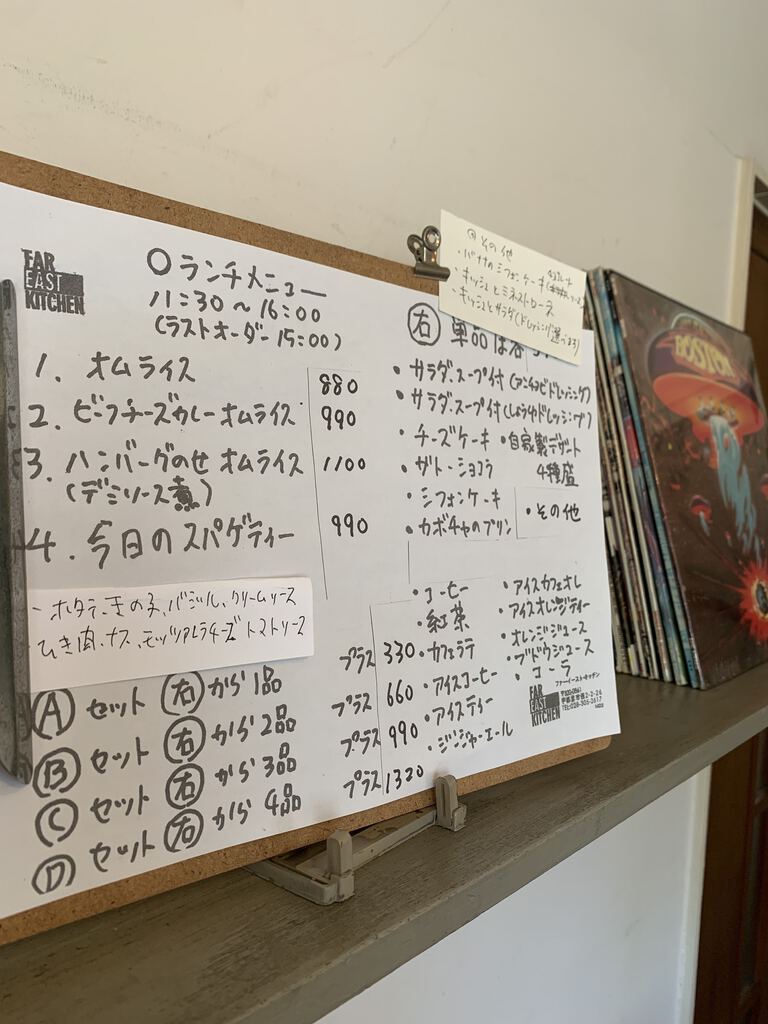 FAR
EAST
KITCHEN
○ランチメニュー
11:30～16:00
(ラストオーダー 15:00)
1. オムライス 880
2. ビーフチーズカレーオムライス 990
3. ハンバーグのせオムライス 1100
(デミソース煮)
4. 今日のスパゲティー 990
・ホタテ、きの子、バジル、クリームソース
ひき肉、ナス、モッツァレラチーズ トマトソース
Ⓐ セット ㊨から1品 プラス 330
Ⓑ セット ㊨から2品 プラス 660
Ⓒ セット ㊨から3品 プラス 990
Ⓓ セット ㊨から4品 プラス 1320
◎その他
・バナナのシフォンケーキ
・キッシュとミネストローネ
・キッシュとサラダ(ドレッシング選べます)
㊨ 単品は各
・サラダ.スープ付(アンチョビドレッシング)
・サラダ.スープ付(しょうゆドレッシング)
・チーズケーキ
・ガトーショコラ
・シフォンケーキ
・カボチャのプリン
・自家製デザート
4種盛
・その他
・コーヒー
・紅茶
・カフェラテ
・アイスコーヒー
・アイスティー
・ジンジャーエール
・アイスカフェオレ
・アイスオレンジティー
・オレンジジュース
・ブドウジュース
・コーラ
FAR
EAST
KITCHEN
ファーイースト・キッチン
BOSTON